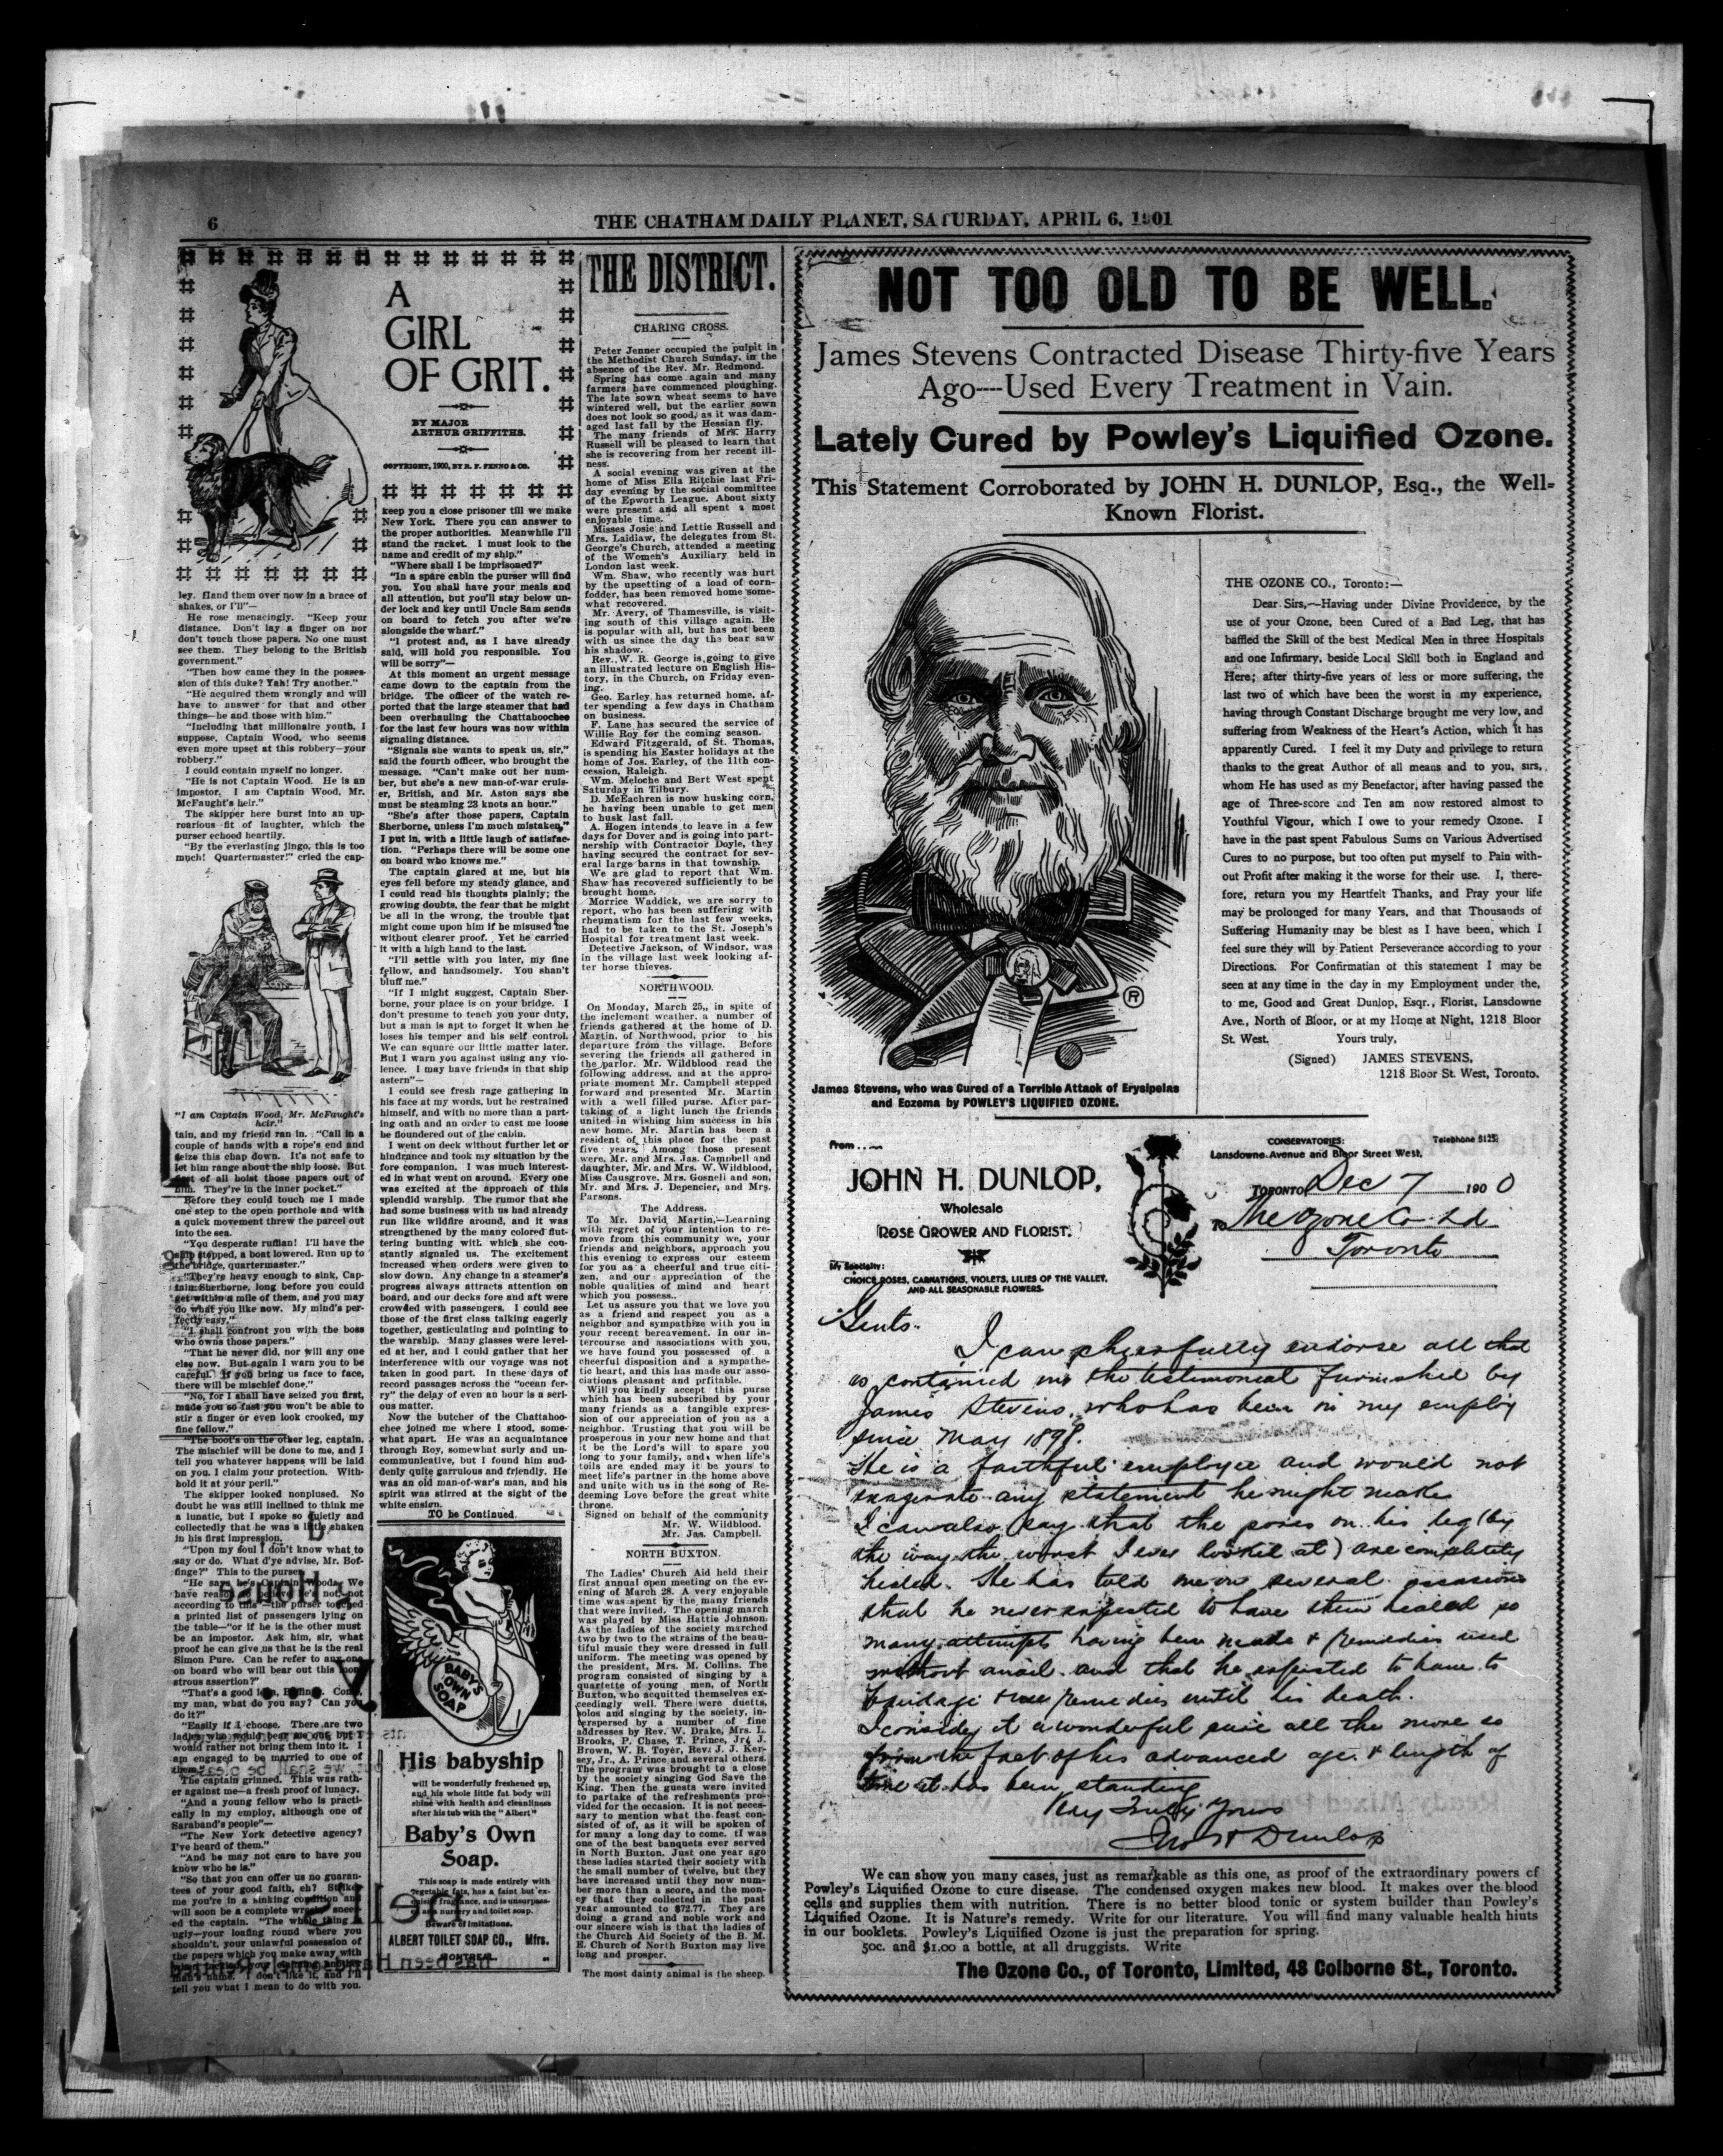 6
THE CHATHAM DAILY PLANET, SATURDAY, APRIL 6, 1901
A
GIRL
OF GRIT.
BY MAJOR
ARTHUR GRIFFITHS.
COPYRIGHT, 1900, BY R. F. FENNO & CO.
ley. Hand them over now in a brace of
shakes, or I'll"—
He rose menacingly. "Keep your
distance. Don't lay a finger on nor
don't touch those papers. No one must
see them. They belong to the British
government."
"Then how came they in the posses-
sion of this duke? Yah! Try another."
"He acquired them wrongly and will
have to answer for that and other
things—he and those with him."
"Including that millionaire youth, I
suppose, Captain Wood, who seems
even more upset at this robbery—your
robbery."
I could contain myself no longer.
"He is not Captain Wood. He is an
impostor. I am Captain Wood, Mr.
McFaught's heir."
The skipper here burst into an up-
roarious fit of laughter, which the
purser echoed heartily.
"By the everlasting jingo, this is too
much! Quartermaster!" cried the cap-
"I am Captain Wood, Mr. McFaught's
heir."
tain, and my friend ran in. "Call in a
couple of hands with a rope's end and
seize this chap down. It's not safe to
let him range about the ship loose. But
first of all hoist those papers out of
him. They're in the inner pocket."
Before they could touch me I made
one step to the open porthole and with
a quick movement threw the parcel out
into the sea.
"You desperate ruffian! I'll have the
ship stopped, a boat lowered. Run up to
the bridge, quartermaster."
"They're heavy enough to sink, Cap-
tain Sherborne, long before you could
get within a mile of them, and you may
do what you like now. My mind's per-
fectly easy."
"I shall confront you with the boss
who owns those papers."
"That he never did, nor will any one
else now. But again I warn you to be
careful. If you bring us face to face,
there will be mischief done."
"No, for I shall have seized you first,
made you so fast you won't be able to
stir a finger or even look crooked, my
fine fellow."
"The boot's on the other leg, captain.
The mischief will be done to me, and I
tell you whatever happens will be laid
on you. I claim your protection. With-
hold it at your peril."
The skipper looked nonplused. No
doubt he was still inclined to think me
a lunatic, but I spoke so quietly and
collectedly that he was a little shaken
in his first impression.
"Upon my soul I don't know what to
say or do. What d'ye advise, Mr. Bof-
finge?" This to the purser.
"He says he's Captain Wood. We
have reason to believe he's not, not
according to this"—the purser touched
a printed list of passengers lying on
the table—"or if he is the other must
be an impostor. Ask him, sir, what
proof he can give us that he is the real
Simon Pure. Can he refer to any one
on board who will bear out this mon-
strous assertion?"
"That's a good idea, Boffinge. Come,
my man, what do you say? Can you
do it?"
"Easily if I choose. There are two
ladies who would bear me out, but I
would rather not bring them into it. I
am engaged to be married to one of
them."
The captain grinned. This was rath-
er against me—a fresh proof of lunacy.
"And a young fellow who is practi-
cally in my employ, although one of
Saraband's people"—
"The New York detective agency?
I've heard of them."
"And he may not care to have you
know who he is."
"So that you can offer us no guaran-
tees of your good faith, eh? Strikes
me you're in a sinking condition and
will soon be a complete wreck," sneer-
ed the captain. "The whole thing is
ugly—your loafing round where you
shouldn't, your unlawful possession of
the papers which you make away with
man's name. I don't like it, and I'll
tell you what I mean to do with you.
keep you a close prisoner till we make
New York. There you can answer to
the proper authorities. Meanwhile I'll
stand the racket. I must look to the
name and credit of my ship."
"Where shall I be imprisoned?"
"In a spare cabin the purser will find
you. You shall have your meals and
all attention, but you'll stay below un-
der lock and key until Uncle Sam sends
on board to fetch you after we're
alongside the wharf."
"I protest and, as I have already
said, will hold you responsible. You
will be sorry"—
At this moment an urgent message
came down to the captain from the
bridge. The officer of the watch re-
ported that the large steamer that had
been overhauling the Chattahoochee
for the last few hours was now within
signaling distance.
"Signals she wants to speak us, sir,"
said the fourth officer, who brought the
message. "Can't make out her num-
ber, but she's a new man-of-war cruis-
er, British, and Mr. Aston says she
must be steaming 23 knots an hour."
"She's after those papers, Captain
Sherborne, unless I'm much mistaken,"
I put in, with a little laugh of satisfac-
tion. "Perhaps there will be some one
on board who knows me."
The captain glared at me, but his
eyes fell before my steady glance, and
I could read his thoughts plainly; the
growing doubts, the fear that he might
be all in the wrong, the trouble that
might come upon him if he misused me
without clearer proof. Yet he carried
it with a high hand to the last.
"I'll settle with you later, my fine
fellow, and handsomely. You shan't
bluff me."
"If I might suggest, Captain Sher-
borne, your place is on your bridge. I
don't presume to teach you your duty,
but a man is apt to forget it when he
loses his temper and his self control.
We can square our little matter later.
But I warn you against using any vio-
lence. I may have friends in that ship
astern"—
I could see fresh rage gathering in
his face at my words, but he restrained
himself, and with no more than a part-
ing oath and an order to cast me loose
he floundered out of the cabin.
I went on deck without further let or
hindrance and took my situation by the
fore companion. I was much interest-
ed in what went on around. Every one
was excited at the approach of this
splendid warship. The rumor that she
had some business with us had already
run like wildfire around, and it was
strengthened by the many colored flut-
tering bunting with which she con-
stantly signaled us. The excitement
increased when orders were given to
slow down. Any change in a steamer's
progress always attracts attention on
board, and our decks fore and aft were
crowded with passengers. I could see
those of the first class talking eagerly
together, gesticulating and pointing to
the warship. Many glasses were level-
ed at her, and I could gather that her
interference with our voyage was not
taken in good part. In these days of
record passages across the "ocean fer-
ry" the delay of even an hour is a seri-
ous matter.
Now the butcher of the Chattahoo-
chee joined me where I stood, some-
what apart. He was an acquaintance
through Roy, somewhat surly and un-
communicative, but I found him sud-
denly quite garrulous and friendly. He
was an old man-of-war's man, and his
spirit was stirred at the sight of the
white ensign.
TO be Continued.
BABY'S
OWN
SOAP
His babyship
will be wonderfully freshened up,
and his whole little fat body will
shine with health and cleanliness
after his tub with the "Albert"
Baby's Own
Soap.
This soap is made entirely with
vegetable fats, has a faint but ex-
quisite fragrance, and is unsurpass-
ed as a nursery and toilet soap.
Beware of imitations.
ALBERT TOILET SOAP CO., Mfrs.
MONTREAL.
THE DISTRICT.
CHARING CROSS.
Peter Jenner occupied the pulpit in
the Methodist Church Sunday, in the
absence of the Rev. Mr. Redmond.
Spring has come again and many
farmers have commenced ploughing.
The late sown wheat seems to have
wintered well, but the earlier sown
does not look so good, as it was dam-
aged last fall by the Hessian fly.
The many friends of Mrs. Harry
Russell will be pleased to learn that
she is recovering from her recent ill-
ness.
A social evening was given at the
home of Miss Ella Ritchie last Fri-
day evening by the social committee
of the Epworth League. About sixty
were present and all spent a most
enjoyable time.
Misses Josie and Lettie Russell and
Mrs. Laidlaw, the delegates from St.
George's Church, attended a meeting
of the Women's Auxiliary held in
London last week.
Wm. Shaw, who recently was hurt
by the upsetting of a load of corn-
fodder, has been removed home some-
what recovered.
Mr. Avery, of Thamesville, is visit-
ing south of this village again. He
is popular with all, but has not been
with us since the day the bear saw
his shadow.
Rev. W. R. George is going to give
an illustrated lecture on English His-
tory, in the Church, on Friday even-
ing.
Geo. Earley has returned home, af-
ter spending a few days in Chatham
on business.
F. Lane has secured the service of
Willie Roy for the coming season.
Edward Fitzgerald, of St. Thomas,
is spending his Easter holidays at the
home of Jos. Earley, of the 11th con-
cession, Raleigh.
Wm. Meloche and Bert West spent
Saturday in Tilbury.
D. McEachren is now husking corn,
he having been unable to get men
to husk last fall.
A. Hogen intends to leave in a few
days for Dover and is going into part-
nership with Contractor Doyle, they
having secured the contract for sev-
eral large barns in that township.
We are glad to report that Wm.
Shaw has recovered sufficiently to be
brought home.
Morrice Waddick, we are sorry to
report, who has been suffering with
rheumatism for the last few weeks,
had to be taken to the St. Joseph's
Hospital for treatment last week.
Detective Jackson, of Windsor, was
in the village last week looking af-
ter horse thieves.
NORTHWOOD.
On Monday, March 25,, in spite of
the inclement weather, a number of
friends gathered at the home of D.
Martin, of Northwood, prior to his
departure from the village. Before
severing the friends all gathered in
the parlor. Mr. Wildblood read the
following address, and at the appro-
priate moment Mr. Campbell stepped
forward and presented Mr. Martin
with a well filled purse. After par-
taking of a light lunch the friends
united in wishing him success in his
new home. Mr. Martin has been a
resident of this place for the past
five years. Among those present
were, Mr. and Mrs. Jas. Campbell and
daughter, Mr. and Mrs. W. Wildblood,
Miss Causgrove, Mrs. Gosnell and son,
Mr. and Mrs. J. Depencier, and Mrs.
Parsons.
The Address.
To Mr. David Martin,—Learning
with regret of your intention to re-
move from this community we, your
friends and neighbors, approach you
this evening to express our esteem
for you as a cheerful and true citi-
zen, and our appreciation of the
noble qualities of mind and heart
which you possess..
Let us assure you that we love you
as a friend and respect you as a
neighbor and sympathize with you in
your recent bereavement. In our in-
tercourse and associations with you,
we have found you possessed of a
cheerful disposition and a sympathe-
tic heart, and this has made our asso-
ciations pleasant and prfitable.
Will you kindly accept this purse
which has been subscribed by your
many friends as a tangible expres-
sion of our appreciation of you as a
neighbor. Trusting that you will be
prosperous in your new home and that
it be the Lord's will to spare you
long to your family, and when life's
toils are ended may it be yours to
meet life's partner in the home above
and unite with us in the song of Re-
deeming Love before the great white
throne.
Signed on behalf of the community
Mr. W. Wildblood.
Mr. Jas. Campbell.
NORTH BUXTON.
The Ladies' Church Aid held their
first annual open meeting on the ev-
ening of March 28. A very enjoyable
time was spent by the many friends
that were invited. The opening march
was played by Miss Hattie Johnson.
As the ladies of the society marched
two by two to the strains of the beau-
tiful music they were dressed in full
uniform. The meeting was opened by
the president, Mrs. M. Collins. The
program consisted of singing by a
quartette of young men, of North
Buxton, who acquitted themselves ex-
ceedingly well. There were duetts,
solos and singing by the society, in-
terspersed by a number of fine
addresses by Rev. W. Drake, Mrs. L.
Brooks, P. Chase, T. Prince, Jr., J.
Brown, W. B. Toyer, Rev. J. J. Ker-
sey, Jr., A. Prince and several others.
The program was brought to a close
by the society singing God Save the
King. Then the guests were invited
to partake of the refreshments pro-
vided for the occasion. It is not neces-
sary to mention what the feast con-
sisted of, as it will be spoken of
for many a long day to come. tI was
one of the best banquets ever served
in North Buxton. Just one year ago
these ladies started their society with
the small number of twelve, but they
have increased until they now num-
ber more than a score, and the mon-
ey that they collected in the past
year amounted to $72.77. They are
doing a grand and noble work and
our sincere wish is that the ladies of
the Church Aid Society of the B. M.
E. Church of North Buxton may live
long and prosper.
The most dainty animal is the sheep.
NOT TOO OLD TO BE WELL.
James Stevens Contracted Disease Thirty-five Years
Ago---Used Every Treatment in Vain.
Lately Cured by Powley's Liquified Ozone.
This Statement Corroborated by JOHN H. DUNLOP, Esq., the Well-
Known Florist.
James Stevens, who was Cured of a Terrible Attack of Erysipelas
and Eczema by POWLEY'S LIQUIFIED OZONE.
THE OZONE CO., Toronto:—
Dear Sirs,—Having under Divine Providence, by the
use of your Ozone, been Cured of a Bad Leg, that has
baffled the Skill of the best Medical Men in three Hospitals
and one Infirmary, beside Local Skill both in England and
Here; after thirty-five years of less or more suffering, the
last two of which have been the worst in my experience,
having through Constant Discharge brought me very low, and
suffering from Weakness of the Heart's Action, which it has
apparently Cured. I feel it my Duty and privilege to return
thanks to the great Author of all means and to you, sirs,
whom He has used as my Benefactor, after having passed the
age of Three-score and Ten am now restored almost to
Youthful Vigour, which I owe to your remedy Ozone. I
have in the past spent Fabulous Sums on Various Advertised
Cures to no purpose, but too often put myself to Pain with-
out Profit after making it the worse for their use. I, there-
fore, return you my Heartfelt Thanks, and Pray your life
may be prolonged for many Years, and that Thousands of
Suffering Humanity may be blest as I have been, which I
feel sure they will by Patient Perseverance according to your
Directions. For Confirmation of this statement I may be
seen at any time in the day in my Employment under the,
to me, Good and Great Dunlop, Esqr., Florist, Lansdowne
Ave., North of Bloor, or at my Home at Night, 1218 Bloor
St. West. Yours truly,
(Signed) JAMES STEVENS,
1218 Bloor St. West, Toronto.
From....
JOHN H. DUNLOP,
Wholesale
ROSE GROWER AND FLORIST.
My Specialty:
CHOICE ROSES, CARNATIONS, VIOLETS, LILIES OF THE VALLEY,
AND ALL SEASONABLE FLOWERS.
CONSERVATORIES: Telephone 5125
Lansdowne Avenue and Bloor Street West.
TORONTO, Dec 7 1900
To The Ozone Co Ld
Toronto
Gents.
I can cheerfully endorse all that
is contained in the testimonial furnished by
James Stevens, who has been in my employ
since May 1898.
He is a faithful employee and would not
exagerate any statement he might make
I can also say that the sores on his leg (by
the way the worst I ever looked at) are completely
healed. He has told me on several occasions
that he never expected to have them healed so
many attempts having been made & remedies used
without avail and that he expected to have to
bandage & use remedies until his death.
I consider it a wonderful cure all the more so
from the fact of his advanced age & length of
time it has been standing
Very Truly Yours
Jno H Dunlop
We can show you many cases, just as remarkable as this one, as proof of the extraordinary powers of
Powley's Liquified Ozone to cure disease. The condensed oxygen makes new blood. It makes over the blood
cells and supplies them with nutrition. There is no better blood tonic or system builder than Powley's
Liquified Ozone. It is Nature's remedy. Write for our literature. You will find many valuable health hints
in our booklets. Powley's Liquified Ozone is just the preparation for spring.
50c. and $1.00 a bottle, at all druggists. Write
The Ozone Co., of Toronto, Limited, 48 Colborne St., Toronto.